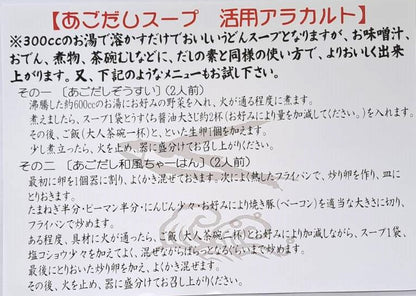 【あごだしスープ 活用アラカルト】
※300ccのお湯で溶かすだけでおいしいうどんスープとなりますが、お味噌汁、
おでん、煮物、茶碗むしなどに、だしの素と同様の使い方で、よりおいしく出来
上がります。又、下記のようなメニューもお試し下さい。
その一 〔あごだしぞうすい〕(2人前)
沸騰した約600ccのお湯にお好みの野菜を入れ、火が通る程度に煮ます。
煮えましたら、スープ1袋とうすくち醤油大さじ約2杯(お好みにより量を加減してください。)を入れます。
その後、ご飯(大人茶碗一杯)と、といた生卵1個を加えます。
少し煮立ったら、火を止め、器に盛分けてお召し上がりください。
その二 〔あごだし和風ちゃーはん〕(2人前)
最初に卵を1個器に割り、よくかき混ぜておきます。次によく熱したフライパンで、炒り卵を作り、皿に
とりおきます。
たまねぎ半分・ピーマン半分・にんじん少々・お好みにより焼き豚(ベーコン)を適当な大きさに切り、
フライパンで炒めます。
ある程度、具材に火が通ったら、ご飯(大人茶碗二杯)とお好みにより加減しながら、スープ1袋、
塩コショウ少々を加えてよく、混ぜながらぱらっとなるくらいまで炒めます。
最後にとりおいた炒り卵を加え、よくかき混ぜます。
その後、火を止め、器に盛分けてお召し上がりください。